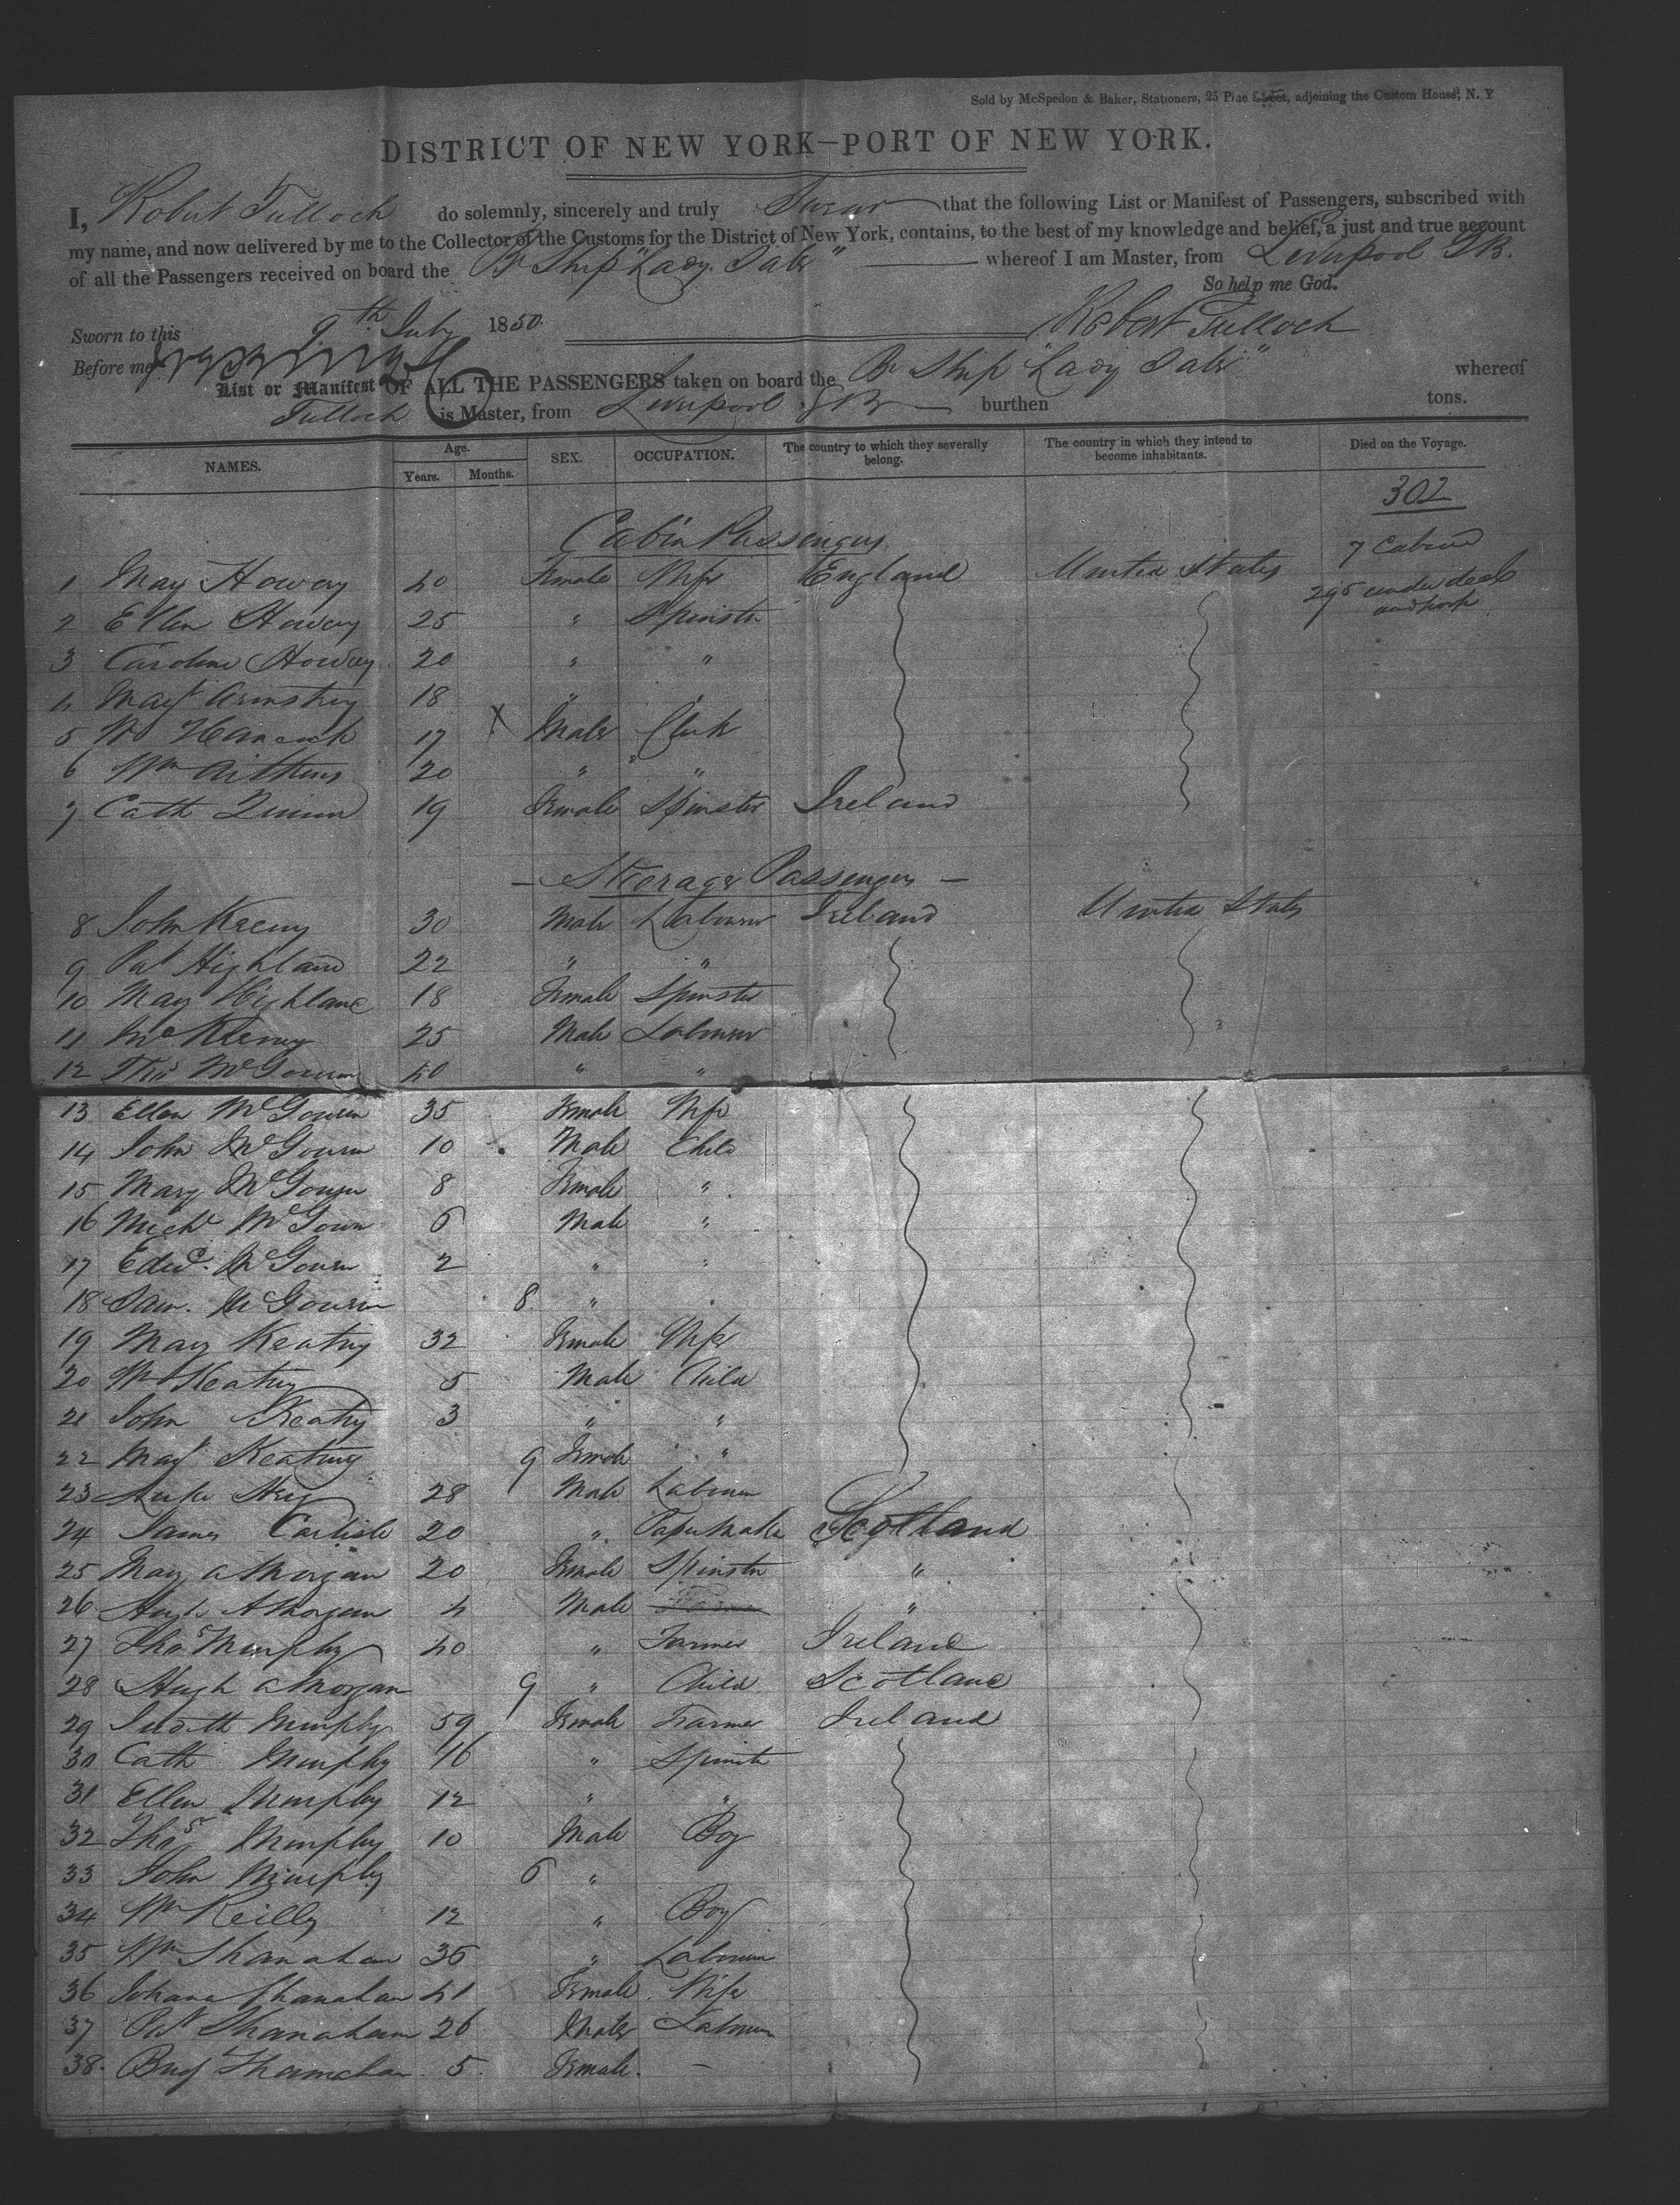 Sold by McSpedon & Baker, Stationers, 25 Pine Street, adjoining the Custom House, N. Y
DISTRICT OF NEW YORK—PORT OF NEW YORK.
I, Robert Tulloch do solemnly, sincerely and truly Swear that the following List or Manifest of Passengers, subscribed with
my name, and now delivered by me to the Collector of the Customs for the District of New York, contains, to the best of my knowledge and belief, a just and true account
of all the Passengers received on board the Br Ship "Lady Sale" whereof I am Master, from Liverpool GB.
So help me God.
Sworn to this 9th July 1850. Robert Tulloch
Before me
List or Manifest OF ALL THE PASSENGERS taken on board the Br Ship "Lady Sale" whereof
Tulloch is Master, from Liverpool GB burthen tons.
NAMES. Age. Years. Months. SEX. OCCUPATION. The country to which they severally belong. The country in which they intend to become inhabitants. Died on the Voyage.
302
Cabin Passengers 7 Cabin
1 Mary 40 Female Wife England United States 295 under deck
and poop
2 Ellen 25 " Spinster
3 Caroline 20 " "
4 Mary Armstrong 18 " "
5 Wm Hancock 17 X Male Clerk
6 Wm Aitkens 20 " "
7 Cath Quinn 19 Female Spinster Ireland
- Steerage Passengers -
8 John 30 Male Labourer Ireland United States
9 Pat Highland 22 " "
10 Mary Highland 18 Female Spinster
11 25 Male Labourer
12 Thos McGowan 40 " "
13 Ellen McGowan 35 Female Wife
14 John McGowan 10 Male Child
15 Mary McGowan 8 Female "
16 Michl McGowan 6 Male "
17 Edwd. McGowan 2 " "
18 McGowan 8 "
19 Mary Keating 32 Female Wife
20 Wm Keating 5 Male Child
21 John Keating 3 " "
22 Mary Keating 9 Female "
23 28 Male Labourer
24 James Carlisle 20 " Paper Maker Scotland
25 Mary A Morgan 20 Female Spinster "
26 Hugh A Morgan 4 Male "
27 Thos Murphy 40 " Farmer Ireland
28 Hugh A Morgan 9 " Child Scotland
29 Judith Murphy 59 Female Farmer Ireland
30 Cath Murphy 16 " Spinster
31 Ellen Murphy 12 " "
32 Thos Murphy 10 Male Boy
33 John Murphy 6 "
34 Wm Reilly 12 " Boy
35 Wm Shanahan 36 " Labourer
36 Johana Shanahan 41 Female Wife
37 Pat Shanahan 26 Male Labourer
38. Shanahan 5. Female. -